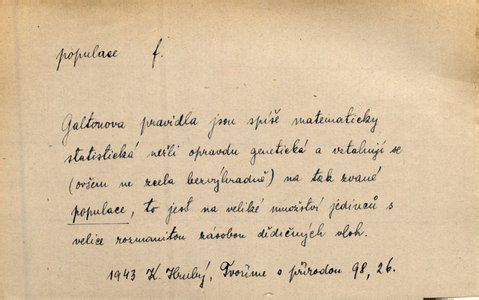 populace f.
Galtonova pravidla jsou spíše matematicky
statistická nežli opravdu genetická a vztahují se
(ovšem ne zcela bezvýhradně) na tak zvané
populace, to jest na veliké množství jedinců s
velice rozmanitou zásobou dědičných vloh.
1943 K. Hrubý, Tvoříme s přírodou 98, 26.